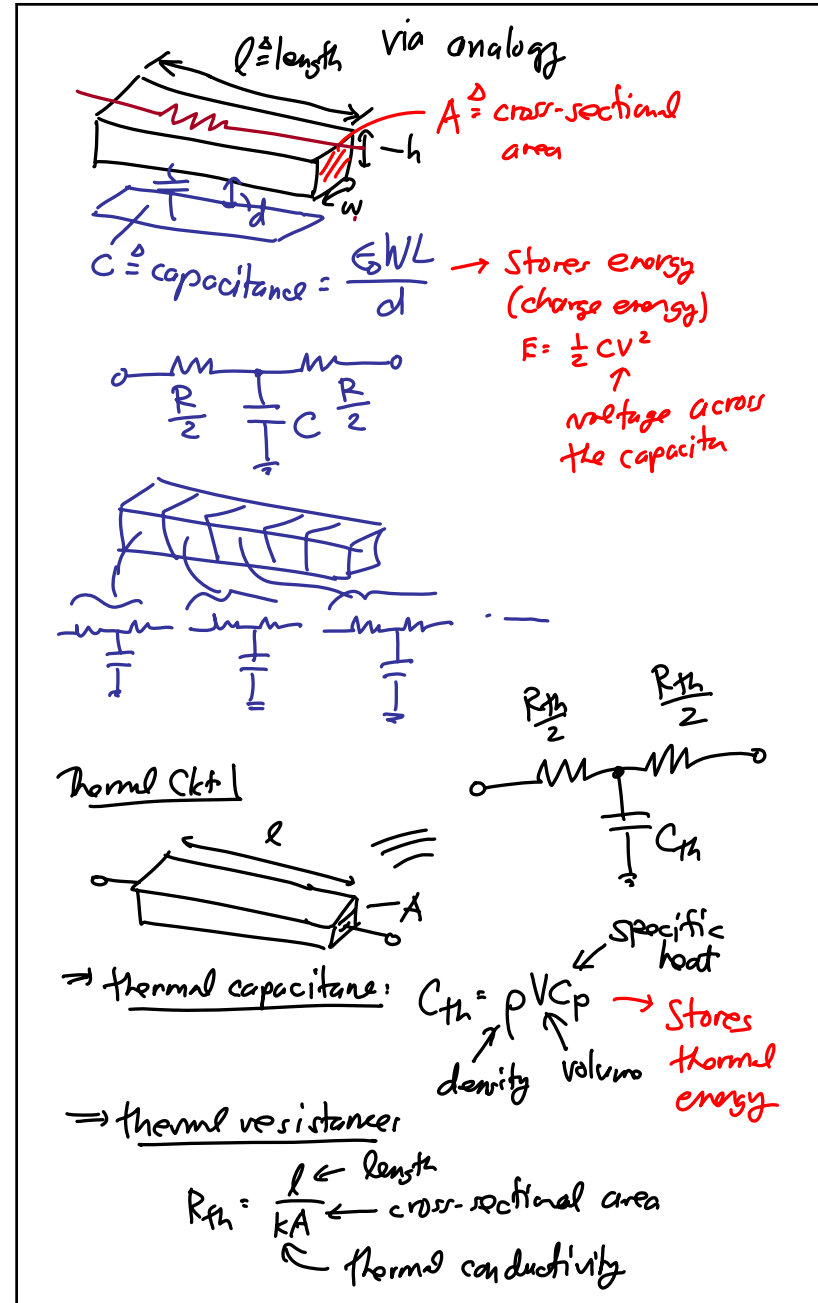 via analogy
l ≜ length
A ≜ cross-sectional
area
h
w
d
C ≜ capacitance = ε₀WL/d → Stores energy
(charge energy)
E = ½ CV²
voltage across
the capacitn
R/2 C R/2
Rth/2 Rth/2
Cth
Thermal Ckt
l
A
specific
heat
⇒ thermal capacitane: Cth = ρVCp → Stores
thermal
energy
density volume
⇒ thermal resistance:
Rth = l/kA
length
cross-sectional area
thermal conductivity